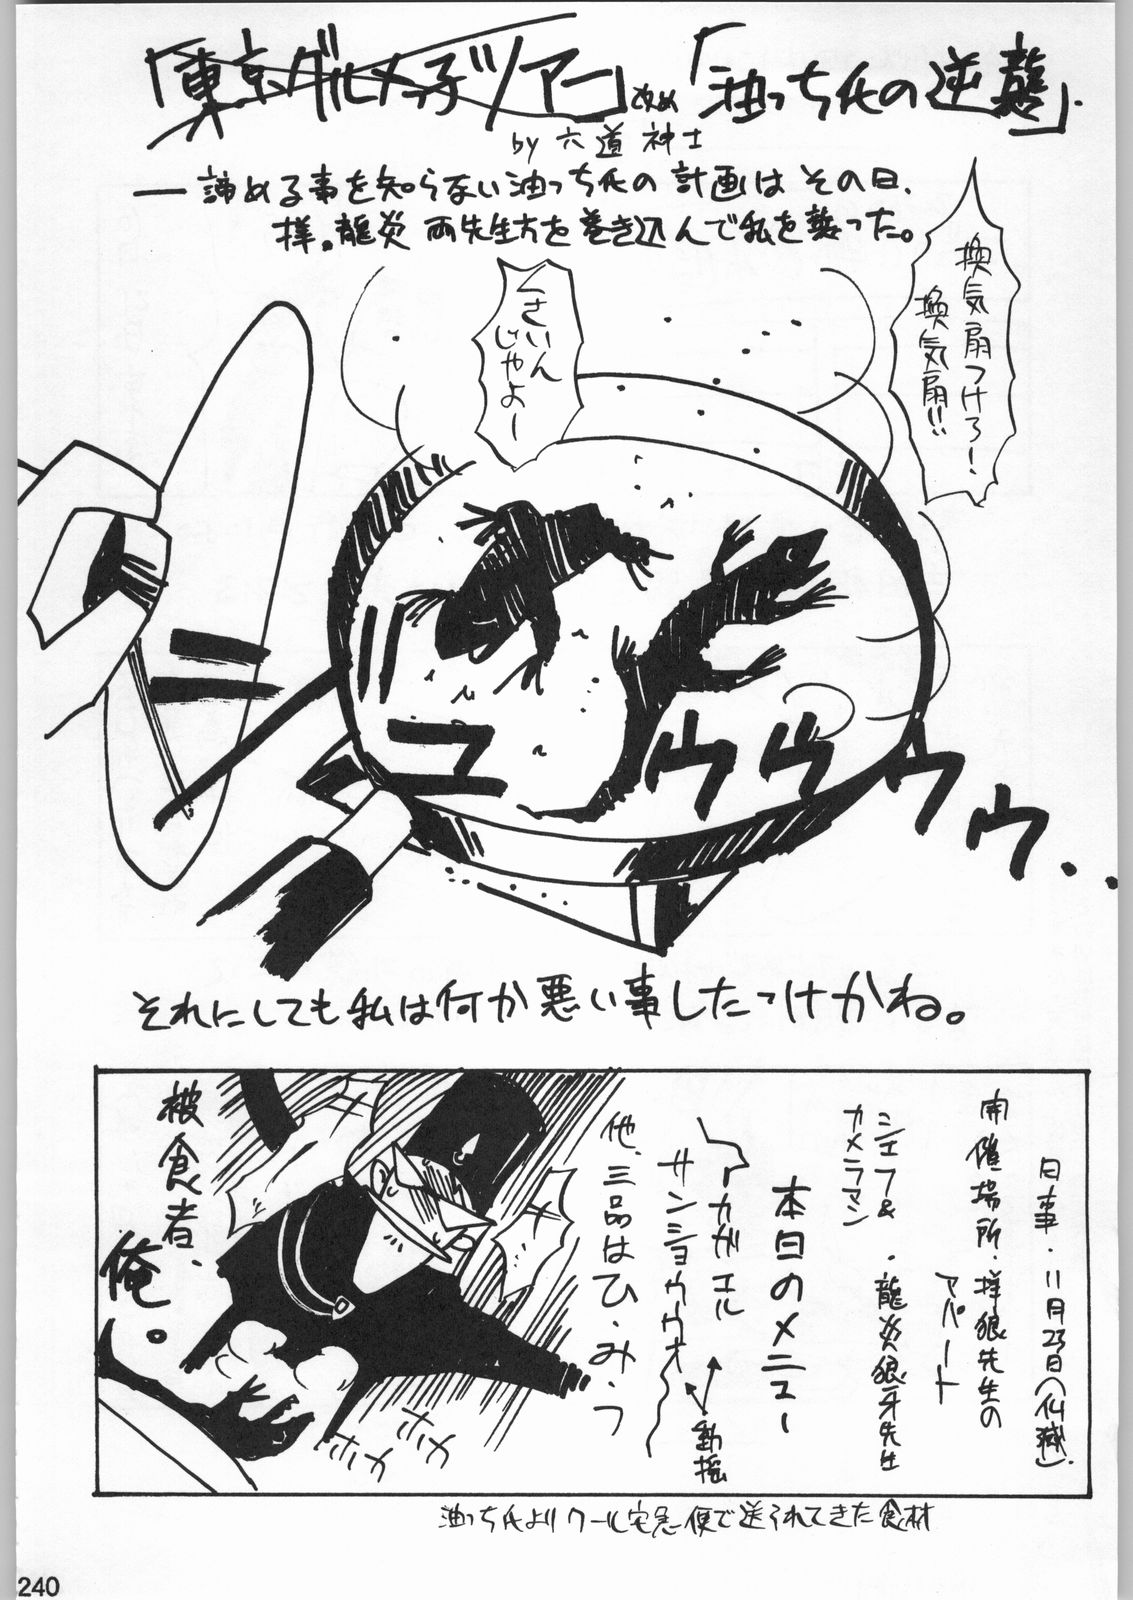 「東京グルメっ子ツアー」改め「油っち氏の逆襲」.
by 六道神士
── 諦める事を知らない油っち氏の計画はその日、
拝。龍炎 両先生方を巻き込んで私を襲った。
換気扇つけろ!
換気扇!!
くさいん
じゃよー
ウヴヴウゥ..
それにしても私は何か悪い事したっけかね。
日事・11月23日(仏滅).
開催場所・拝狼先生の
アパート
シェフ&
カメラマン ・龍炎狼牙先生
本日のメニュー
アカガエル
サンショウウオ
動揺
他、三品はひ・み・つ
被食者、
俺。
ホカ
ホカ
油っち氏よりクール宅急便で送られてきた食材
240